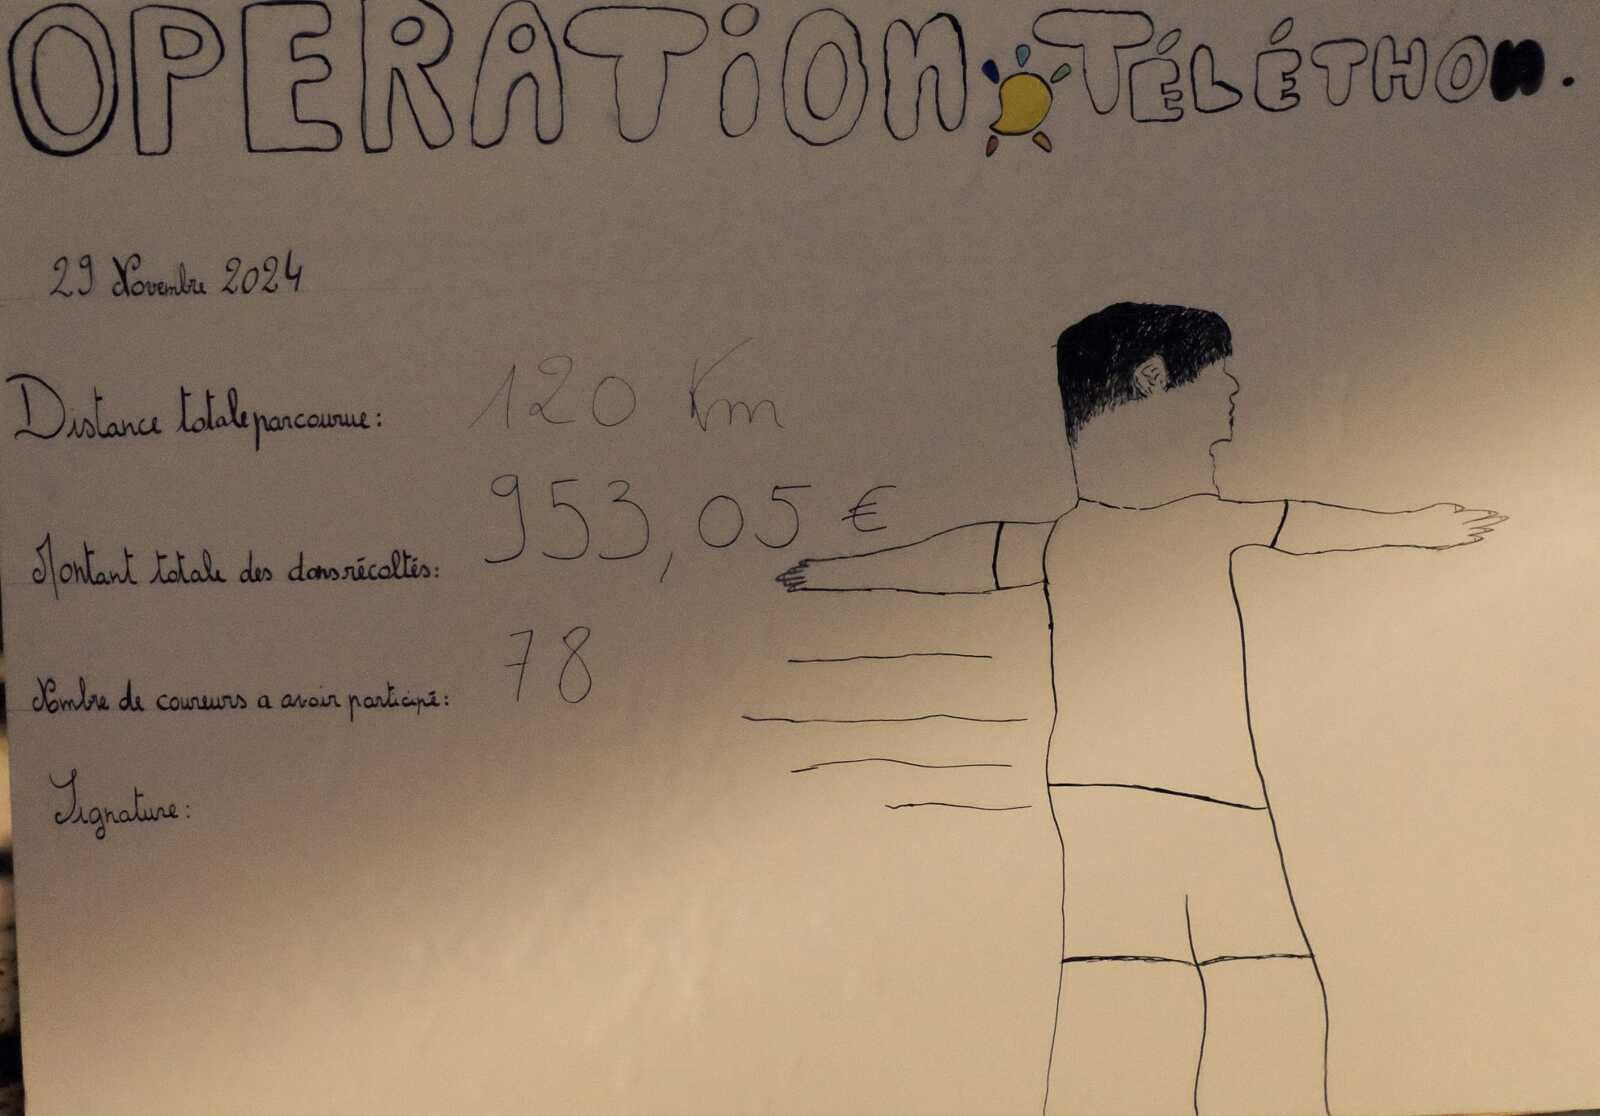 OPERATION TÉLÉTHON.
29 Novembre 2024
Distance totale parcourue: 120 Km
Montant totale des dons récoltés: 953,05 €
Nombre de coureurs a avoir participé: 78
Signature: